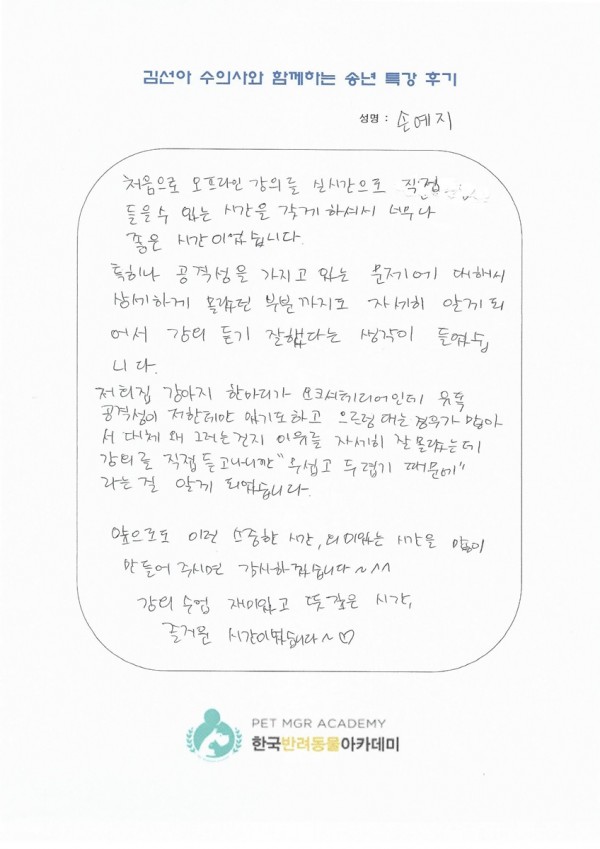 김선아 수의사와 함께하는 송년 특강 후기
성명 : 손예지
처음으로 오프라인 강의를 실시간으로 직접
들을수 있는 시간을 갖게하셔서 너무나
좋은 시간이었습니다.
특히나 공격성을 가지고 있는 문제에 대해서
상세하게 몰랐던 부분까지도 자세히 알게되
어서 강의 듣기 잘했다는 생각이 들었습
니다.
저희집 강아지 한마리가 요크셔테리어인데 유독
공격성이 저한테만 있기도하고 으르렁 대는 경우가 많아
서 대체 왜 그러는건지 이유를 자세히 잘 몰랐는데
강의를 직접 듣고나니깐 "무섭고 두렵기 때문에"
라는걸 알게 되었습니다.
앞으로도 이런 소중한 시간, 의미있는 시간을 많이
만들어 주시면 감사하겠습니다~^^
강의 수업 재미있고 뜻깊은 시간,
즐거운 시간이었습니다~♡
PET MGR ACADEMY
한국반려동물아카데미